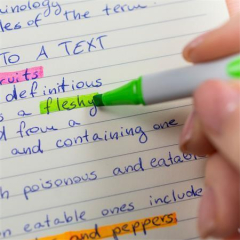 minology
les of the term.
TO A TEXT
fruits
definitions
s a fleshy
d from a
and containing one
h poisonous and eatable
n eatable ones include
and peppers.